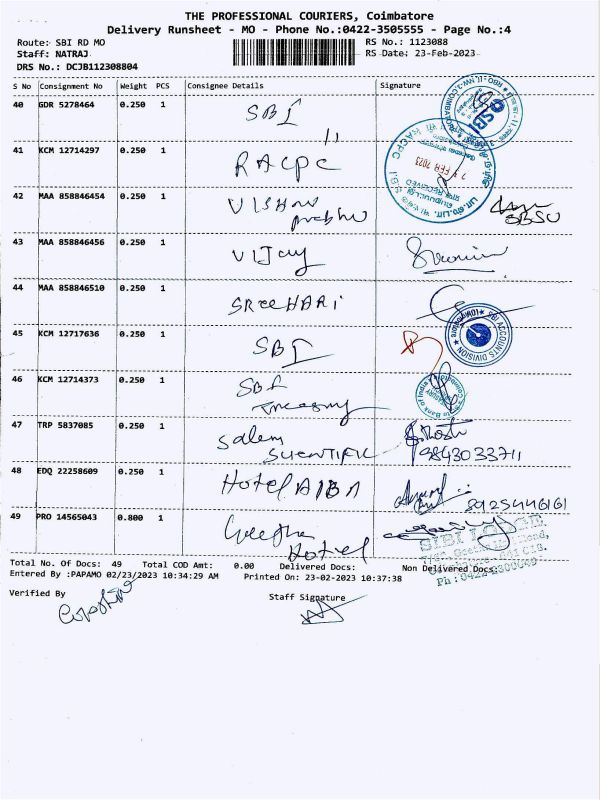 THE PROFESSIONAL COURIERS, Coimbatore
Delivery Runsheet - MO - Phone No.:0422-3505555 - Page No.:4
Route: SBI RD MO
RS No.: 1123088
Staff: NATRAJ
RS Date: 23-Feb-2023
DRS No.: DCJB112308804
S No Consignment No Weight PCS Consignee Details Signature
40 GDR 5278464 0.250 1 SBI
41 KCM 12714297 0.250 1 RACPC
42 MAA 858846454 0.250 1 Vishnu
prabhu
SBSU
43 MAA 858846456 0.250 1 Vijay
44 MAA 858846510 0.250 1 SREEHARI
45 KCM 12717636 0.250 1 SBI
SBI ACCOUNTS DIVISION
46 KCM 12714373 0.250 1 SBI
Treasury
47 TRP 5837085 0.250 1 Salem
SCIENTIFIC 9843033711
48 EDQ 22258609 0.250 1 Hotel AIBA
8925446161
49 PRO 14565043 0.800 1 Geetha
Hotel
Total No. Of Docs: 49 Total COD Amt: 0.00 Delivered Docs: Non Delivered Docs:
Entered By :PAPAMO 02/23/2023 10:34:29 AM Printed On: 23-02-2023 10:37:38
Verified By
Staff Signature